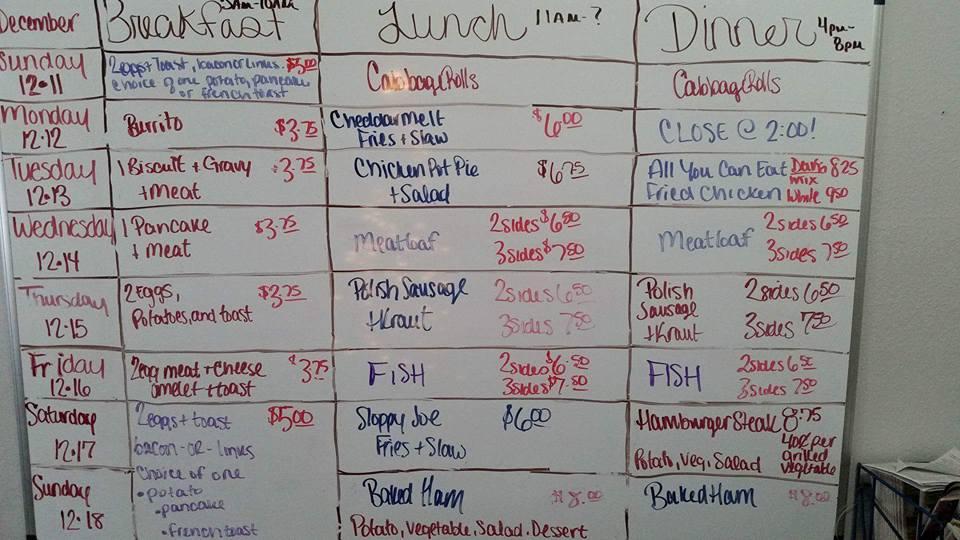 December Breakfast 5AM-10AM Lunch 11AM-? Dinner 4pm-8pm
Sunday
12·11
2eggs+Toast, bacon or Links. $5.00
choice of one potato, pancake
or french toast
Cabbage Rolls
Cabbage Rolls
Monday
12·12
Burrito $3.75
Cheddar Melt
Fries + Slaw
$6.00
CLOSE @ 2:00!
Tuesday
12·13
1 Biscuit + Gravy
+ meat
$3.75
Chicken Pot Pie
+ Salad
$6.75
All You Can Eat Dark 8.25
mix
Fried Chicken White 9.50
Wednesday
12·14
1 Pancake
+ meat
$3.75
Meatloaf
2 sides $6.50
3 sides $7.50
Meatloaf
2 sides 6.50
3 sides 7.50
Thursday
12·15
2 eggs,
Potatoes, and toast
$3.75
Polish Sausage
+ Kraut
2 sides 6.50
3 sides 7.50
Polish
Sausage
+ Kraut
2 sides 6.50
3 sides 7.50
Friday
12·16
2egg meat + cheese
omelet + toast
$3.75
FISH
2 sides $6.50
3 sides $7.50
FISH
2 sides 6.50
3 sides 7.50
Saturday
12·17
2 eggs + toast $5.00
bacon -or- links
Choice of one
• potato
• pancake
• french toast
Sloppy Joe
Fries + Slaw
$6.00
Hamburger Steak 8.75
Potato, Veg, Salad
40¢ per
grilled
vegetable
Sunday
12·18
Baked Ham $8.00
Potato, Vegetable, Salad, Dessert
Baked Ham $8.00